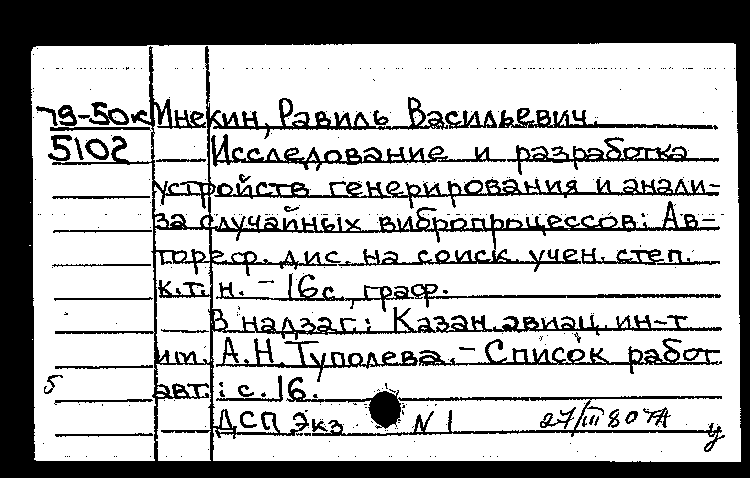 79-50к Инекин, Равиль Васильевич.
5102 Исследование и разработка
устройств генерирования и анали-
за случайных вибропроцессов: Ав-
тореф. дис. на соиск учен. степ.
к.т.н. - 16с, граф.
В надзаг.: Казан. авиац. ин-т
им. А.Н. Туполева. - Список работ
5 авт.: с. 16.
ДСП Экз N 1 27/III 80
у